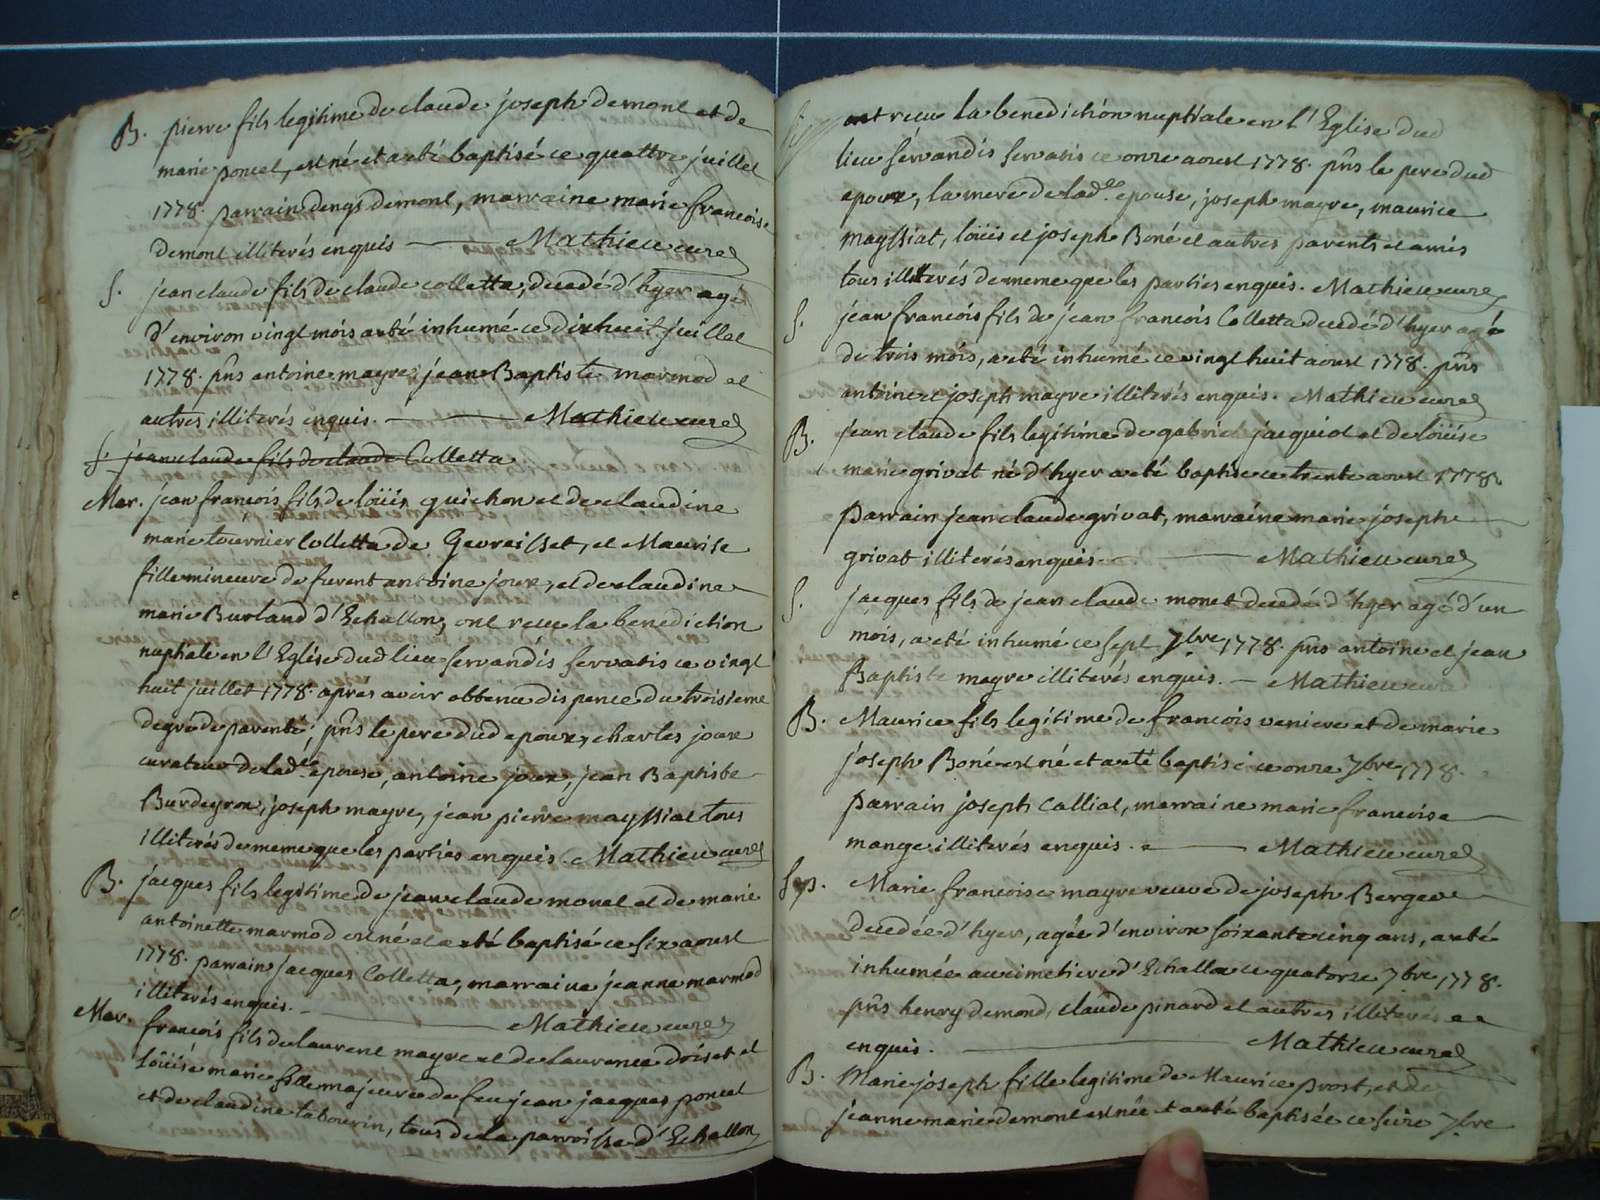 B. pierre fils legitime de claude joseph demont et de
marie poncet, est né et a eté baptisé ce quattre juillet
1778. parrain denys demont, marraine marie francoise
demont illiterés enquis Mathieu curé
S. jean claude fils de claude colletta, decedé d'hyer agé
d'environ vingt mois a eté inhumé ce dixhuit juillet
1778. pns antoine mayre, jean Baptiste marmod et
autres illiterés enquis. Mathieu curé
S. jean claude fils de claude Colletta
Mar. jean françois fils de loüis guichon et de claudine
marie tournier Colletta de Geovreisset, et Maurise
fille mineure de furent antoine joux, et de claudine
marie Burland d'Echallon, ont receu la benediction
nuptiale en l'Eglise dud lieu servandis servatis ce vingt
huit juillet 1778. aprés avoir obtenu dispence du troisieme
degré de parenté; pns le pere dud epoux, charles joux
curateur de lad.e epouse, antoine joux, jean Baptiste
Burdeyron, joseph mayre, jean pierre mayssiat tous
illiterés de meme que les parties enquis. Mathieu curé
B. jacques fils legitime de jean claude monet et de marie
antoinette marmod est né et a eté baptisé ce six aoust
1778. parrain jacques Colletta, marraine jeanne marmod
illiterés enquis. Mathieu curé
Mar. francois fils de laurent mayre et de laurence doiset et
Loüise marie fille majeure de feu jean jacques poncet
et de claudine tabourin, tous de la parroisse d'Echallon
ont receu la benediction nuptiale en l'Eglise dud
lieu servandis servatis ce onze aoust 1778. pns le pere dud
epoux, la mere de lad.e epouse, joseph mayre, maurice
mayssiat, loüis et joseph Boné et autres parents et amis
tous illiterés de meme que les parties enquis. Mathieu curé
S. jean francois fils de jean francois Colletta decedé d'hyer agé
de trois mois, a eté inhumé ce vingt huit aoust 1778. pns
antoine et joseph mayre illiterés enquis. Mathieu curé
B. jean claude fils legitime de gabriel jacquiot et de loüise
marie grivat né d'hyer a eté baptisé ce trente aoust 1778.
parrain jean claude grivat, marraine marie joseph
grivat illiterés enquis. Mathieu curé
S. jacques fils de jean claude monet decedé d'hyer agé d'un
mois, a eté inhumé ce sept 7bre 1778. pns antoine et jean
Baptiste mayre illiterés enquis. Mathieu curé
B. Maurice fils legitime de francois veniere et de marie
joseph Boné est né et a eté baptisé ce onze 7bre 1778.
parrain joseph Calliat, marraine marie francoise
mange illiterés enquis. Mathieu curé
Sep. Marie francoise mayre veuve de joseph Berger
decedée d'hyer, agée d'environ soixante cinq ans, a eté
inhumée au cimetiere d'Echallon ce quatorze 7bre 1778.
pns henry demond, claude pinard et autres illiterés
enquis. Mathieu curé
B. Marie joseph fille legitime de Maurice prost, et de
jeanne marie demont est née et a eté baptisée ce seize 7bre